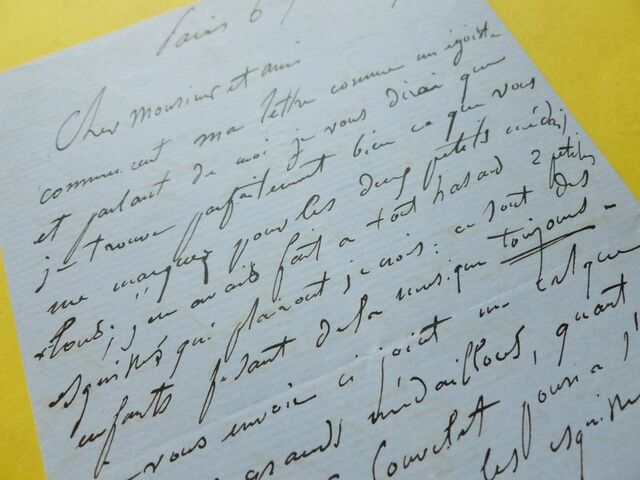 Paris 6
Cher Monsieur et ami
commencant ma lettre comme un égoiste
et parlant de moi je vous dirai que
je trouve parfaitement bien ce que vous
me marquez pour les deux petits médail
lons. j'en avais fait a tout hasard 2 petites
esquisses qui plairont je crois : ce sont des
enfants fesant de la musique toujours -
vous envoie ci joint un calque
grands médaillons, quant
Couvelet pourra
les esquisses